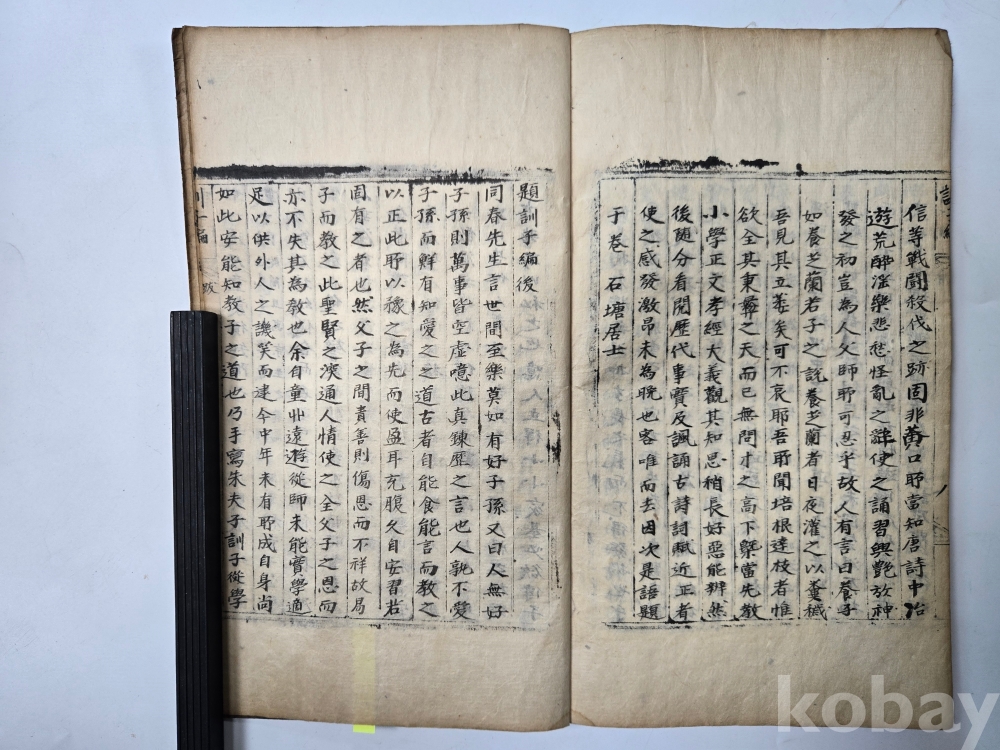 信等戰鬪殺伐之跡固非黃口所當知唐詩中冶
遊荒醉淫樂悲愁怪亂之辭使之誦習興艶放神
發之初豈爲人父師所可忍乎故人有言曰養子
如養芝蘭若子之說養芝蘭者日夜灌之以糞穢
吾見其立萎矣可不哀耶吾所聞培根達枝者惟
欲全其秉彝之天而已無問才之高下槩當先教
小學正文孝經大義觀其知思稍長好惡能辨然
後隨分看閱歷代事實及諷誦古詩詞賦近正者
使之感發激昂未為晚也客唯而去因次是語題
于卷 石塘居士
題訓子編後
同春先生言世間至樂莫如有好子孫又曰人無好
子孫則萬事皆空虛噫此真鍊歷之言也人孰不愛
子孫而鮮有知愛之之道古者自能食能言而教之
以正此所以豫之為先而使盈耳充腹久自安習若
固有之者也然父子之間責善則傷恩而不祥故易
子而教之此聖賢之深通人情使之全父子之恩而
亦不失其為教也余自童丱遠遊從師未能實學適
足以供外人之譏笑而逮今中年未有所成自身尚
如此安能知教子之道也乃手寫朱夫子訓子從學
訓子編 跋
kobay